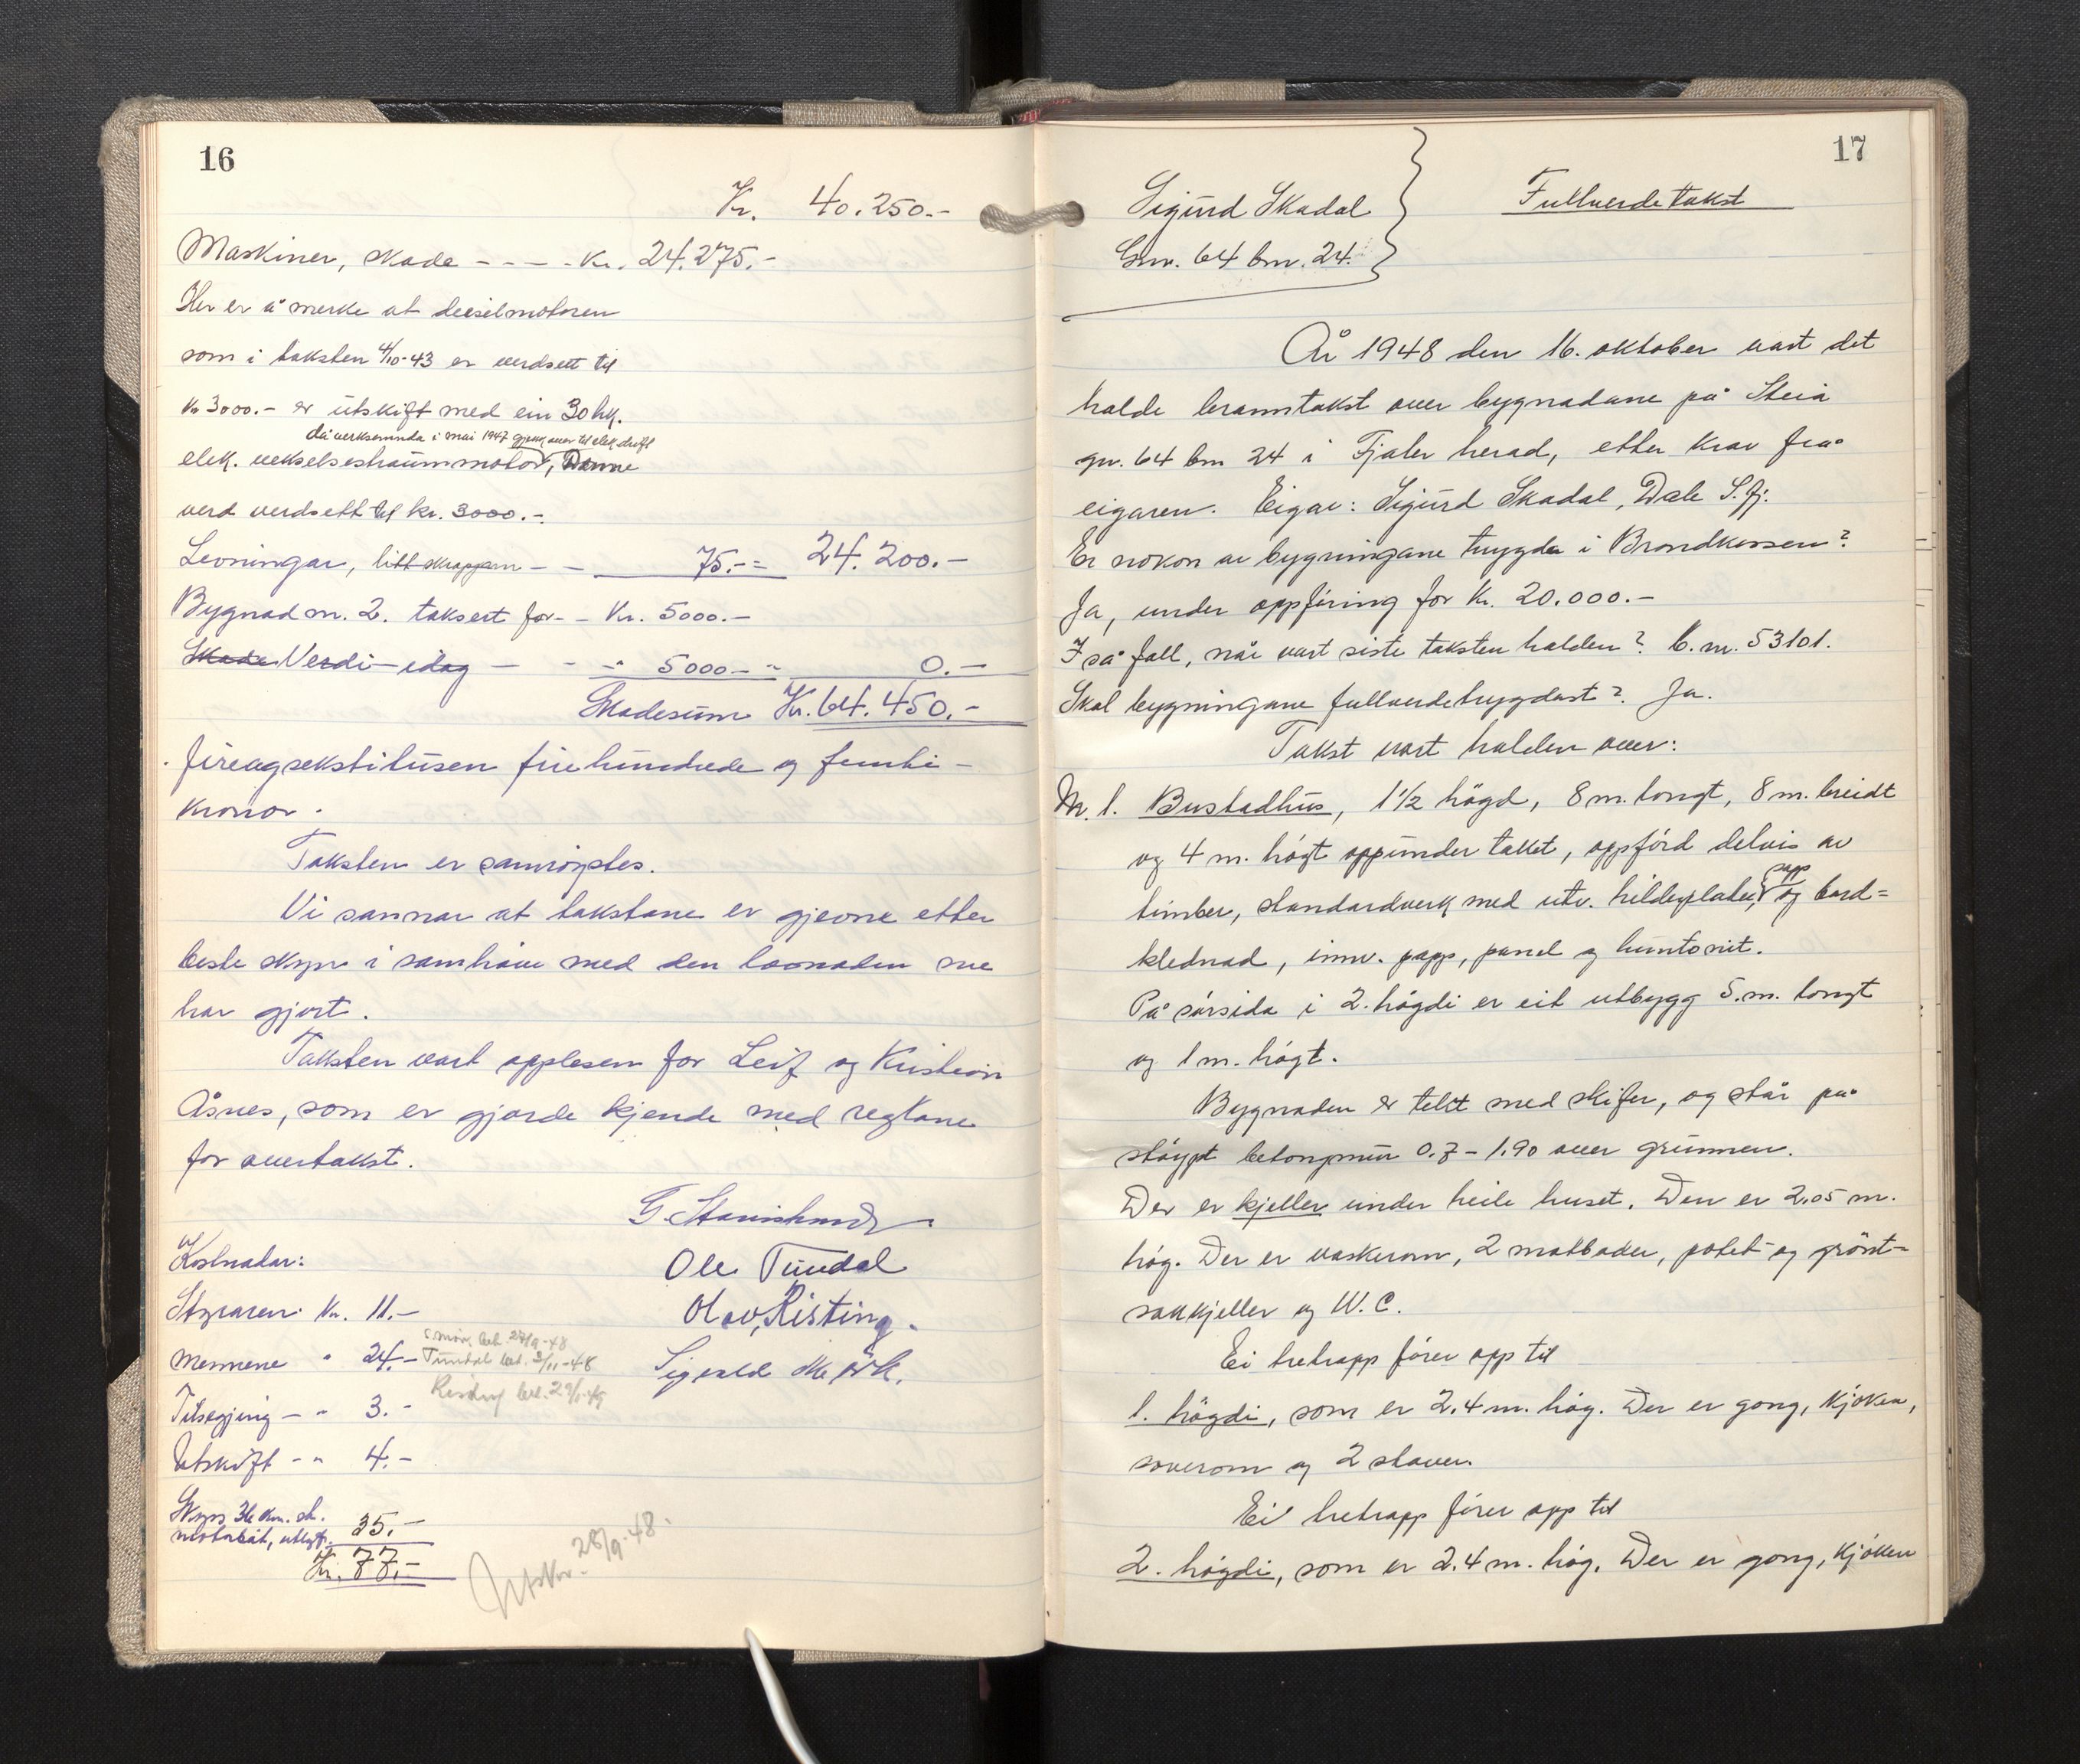 16
Kr. 40.250.-
Maskiner, skade - - - - Kr. 24.275.-
Her er å merke at deiselmotoren
som i taksten 4/10-43 er verdsett til
kr 3000.- er utskift med ein 30 hk.
då verksemda i mai 1947 gjekk over til elek. drift
elek. vekselsstraummotor, Denne
verd verdsett til kr. 3000.-
Levningar, litt skrapjern - - 75.- = 24.200.-
Bygnad nr. 2. taksert for - - Kr. 5000.-
Skade Verdi idag - - " 5000 - " 0.-
Skadesum Kr. 64.450.-
fireogsekstitusen firehundrede og femti-
kronor.
Taksten er samrøystes.
Vi sannar at takstane er gjevne etter
beste skyn i samhøve med den lovnaden me
har gjort.
Taksten vart opplesen for Leif og Kristian
Åsnes, som er gjorde kjende med reglane
for overtakst.
Ole Tundal
Kostnadar:
Olav Risting.
Styraren Kr. 11.-
Mennene " 24.-
Tundal bet. 2/11-48
Sigvald Mørk.
Tilsegjing - " 3.-
Utskrift - " 4.-
Skyss 36 km. sk.
motorbåt, utlegg. 35.-
Kr. 77.-
Utskr. 28/9-48.
17
Sigurd Skadal
Gnr. 64 bnr. 24.
Fullverdetakst
År 1948 den 16. oktober vart det
halde branntakst over bygnadane på Steia
gnr. 64 bnr 24 i Fjaler herad, etter krav frå
eigaren. Eigar: Sigurd Skadal, Dale S.fj.
Er nokon av bygningane trygda i Brandkassen?
Ja, under oppføring for Kr. 20.000.-
I så fall, når vart siste taksten halden? B.nr. 53101.
Skal bygningane fullverdetrygdast? Ja.
Takst vart halden over:
Nr. 1. Bustadhus, 1 1/2 høgd, 8 m. langt, 8 m. breidt
og 4 m. høgt oppunder taket, oppførd delvis av
papp
timber, standardverk med utv. hildeplater, og bord=
klednad, innv. papp, panel og huntonit.
På sørsida i 2. høgdi er eit utbygg 5. m. langt
og 1 m. høgt.
Bygnaden er tekt med skifer, og står på
støypt betongmur 0.7 - 1.90 over grunnen.
Der er kjeller under heile huset. Den er 2.05 m.
høg. Der er vaskerom, 2 matboder, potet- og grønt-
sakkjeller og W.C.
Ei tretrapp fører opp til
1. høgdi, som er 2.4 m. høg. Der er gang, kjøken,
soverom og 2 stover.
Ei tretrapp fører opp til
2. høgdi, som er 2.4 m. høg. Der er gong, kjøken